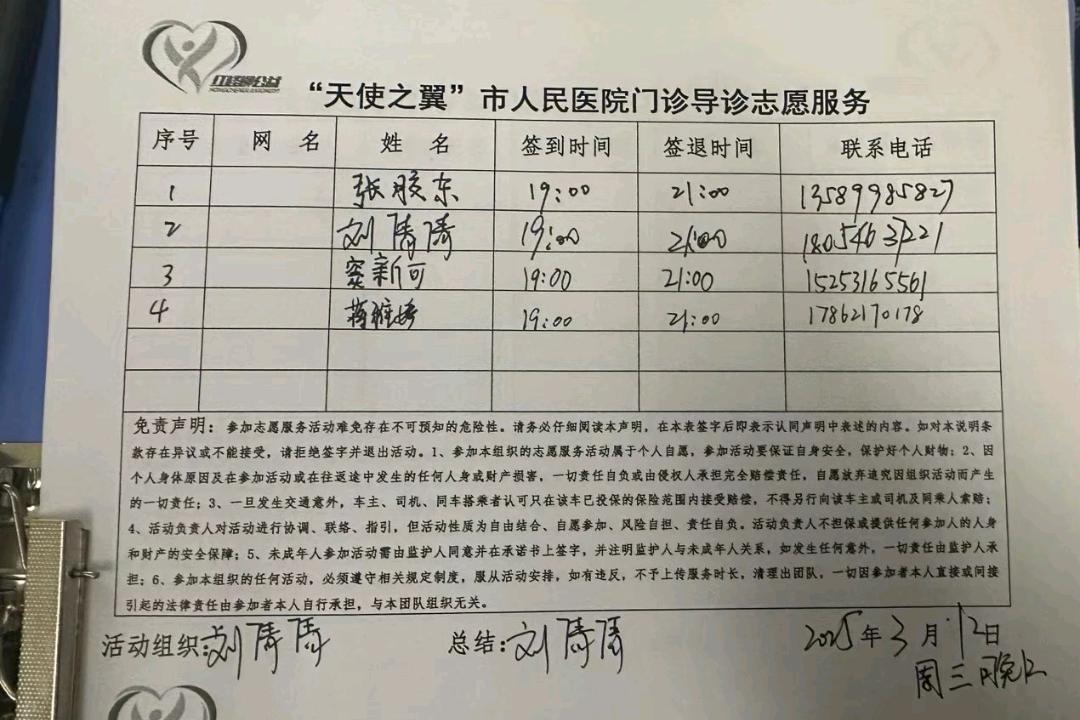 红城公益
“天使之翼”市人民医院门诊导诊志愿服务
序号 网 名 姓 名 签到时间 签退时间 联系电话
1 张胶东 19:00 21:00 13589985827
2 刘倩倩 19:00 21:00 18054631221
3 窦新可 19:00 21:00 15253165561
4 蒋雅婷 19:00 21:00 17862170178
免责声明：参加志愿服务活动难免存在不可预知的危险性。请务必仔细阅读本声明，在本表签字后即表示认同声明中表述的内容。如对本说明条
款存在异议或不能接受，请拒绝签字并退出活动。1、参加本组织的志愿服务活动属于个人自愿，参加活动要保证自身安全，保护好个人财物；2、因
个人身体原因及在参加活动或在往返途中发生的任何人身或财产损害，一切责任自负或由侵权人承担完全赔偿责任，自愿放弃追究因组织活动而产生
的一切责任；3、一旦发生交通意外，车主、司机、同车搭乘者认可只在该车已投保的保险范围内接受赔偿，不得另行向该车主或司机及同乘人索赔；
4、活动负责人对活动进行协调、联络、指引，但活动性质为自由结合、自愿参加、风险自担、责任自负。活动负责人不担保或提供任何参加人的人身
和财产的安全保障；5、未成年人参加活动需由监护人同意并在承诺书上签字，并注明监护人与未成年人关系，如发生任何意外，一切责任由监护人承
担；6、参加本组织的任何活动，必须遵守相关规定制度，服从活动安排，如有违反，不予上传服务时长，清理出团队，一切因参加者本人直接或间接
引起的法律责任由参加者本人自行承担，与本团队组织无关。
活动组织：刘倩倩 总结：刘倩倩 2025年3月12日
周三晚上